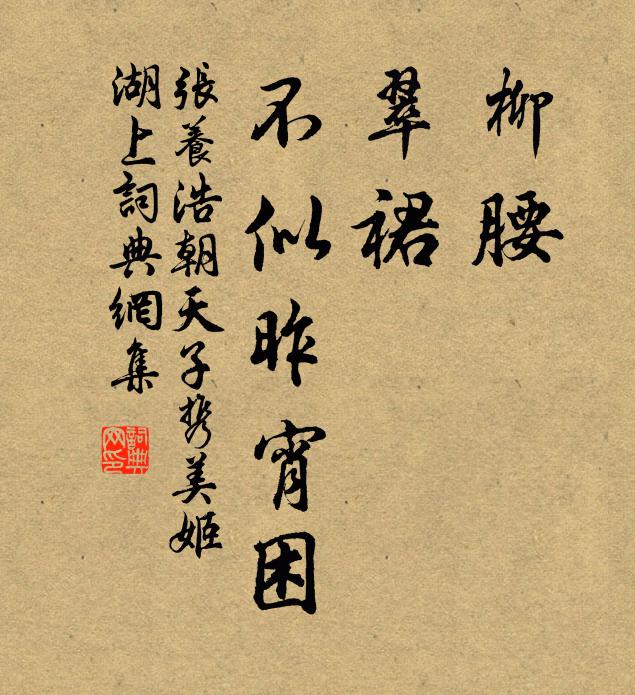 柳腰
翠裙
不似昨宵困
張養浩朝天子携美姬
湖上詞典網集
詞典網印